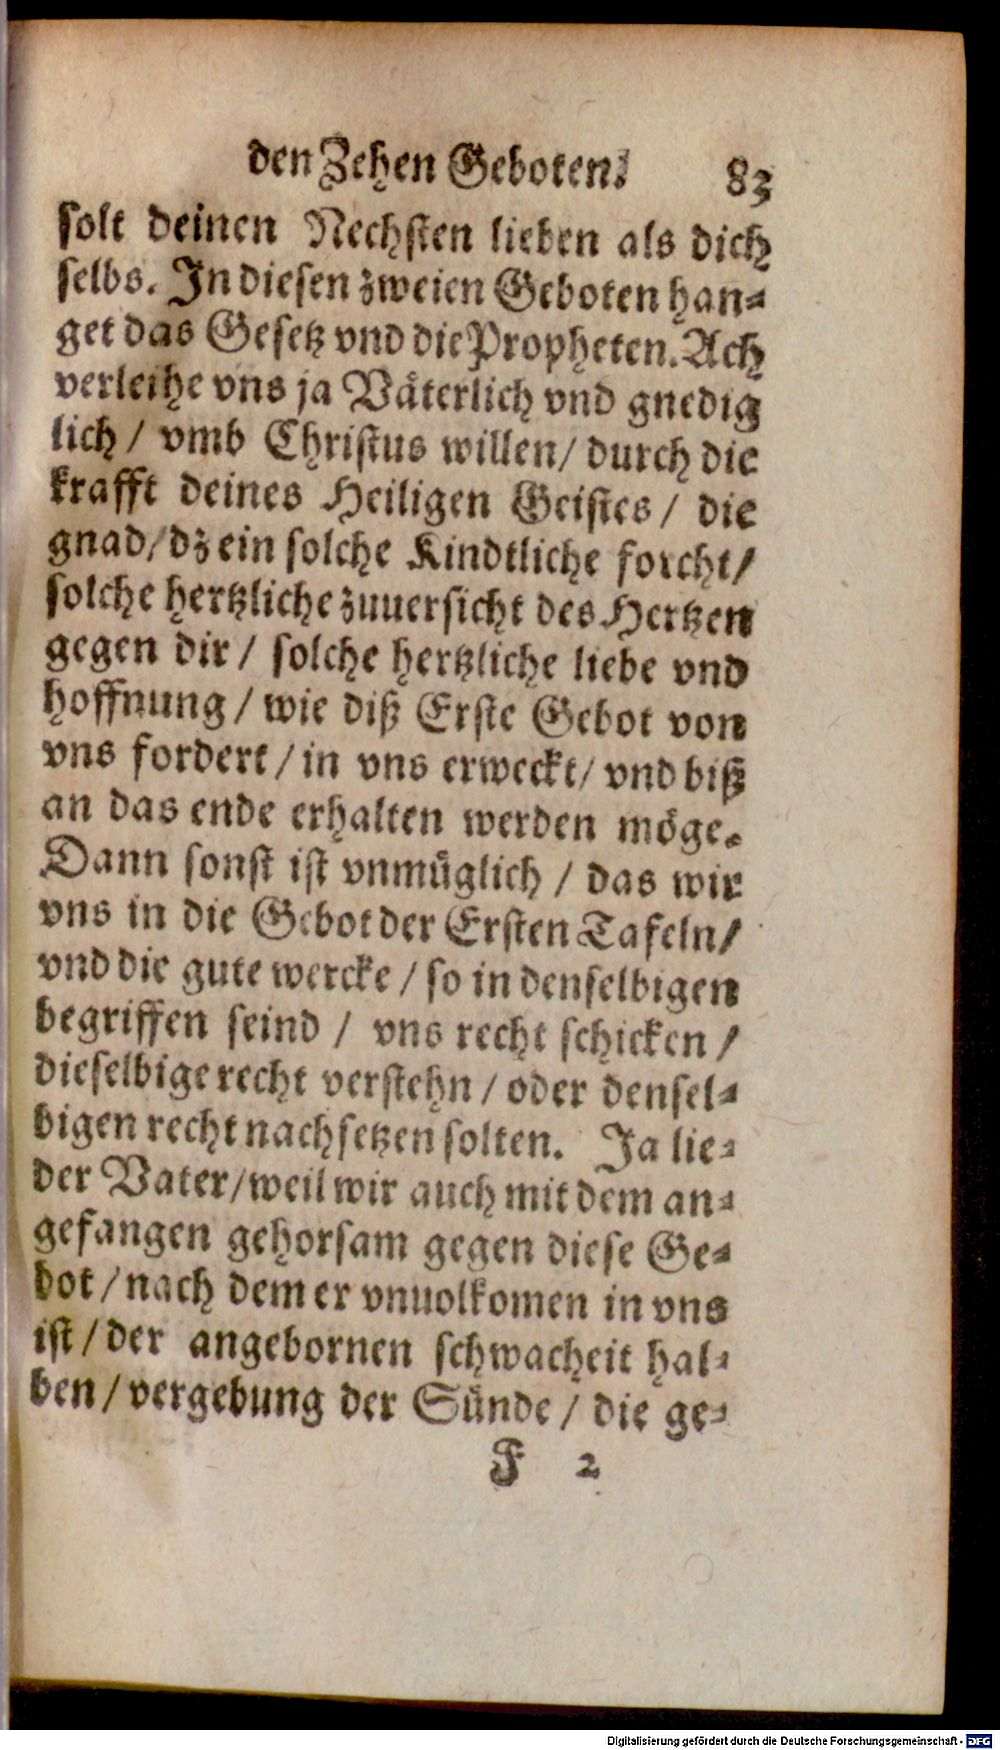 den Zehen Geboten. 83
solt deinen Nechsten lieben als dich
selbs. In diesen zweien Geboten han-
get das Gesetz vnd die Propheten. Ach
verleihe vns ja Väterlich vnd gnedig
lich / vmb Christus willen / durch die
krafft deines Heiligen Geistes / die
gnad / dz ein solche Kindtliche forcht /
solche hertzliche zuuersicht des Hertzen
gegen dir / solche hertzliche liebe vnd
hoffnung / wie diß Erste Gebot von
vns fordert / in vns erweckt / vnd biß
an das ende erhalten werden möge.
Dann sonst ist vnmüglich / das wir
vns in die Gebot der Ersten Tafeln /
vnd die gute wercke / so in denselbigen
begriffen seind / vns recht schicken /
dieselbige recht verstehn / oder densel-
bigen recht nachsetzen solten. Ja lie-
ber Vater / weil wir auch mit dem an-
gefangen gehorsam gegen diese Ge-
bot / nach dem er vnuolkomen in vns
ist / der angebornen schwacheit hal-
ben / vergebung der Sünde / die ge-
F 2
Digitalisierung gefördert durch die Deutsche Forschungsgemeinschaft - DFG